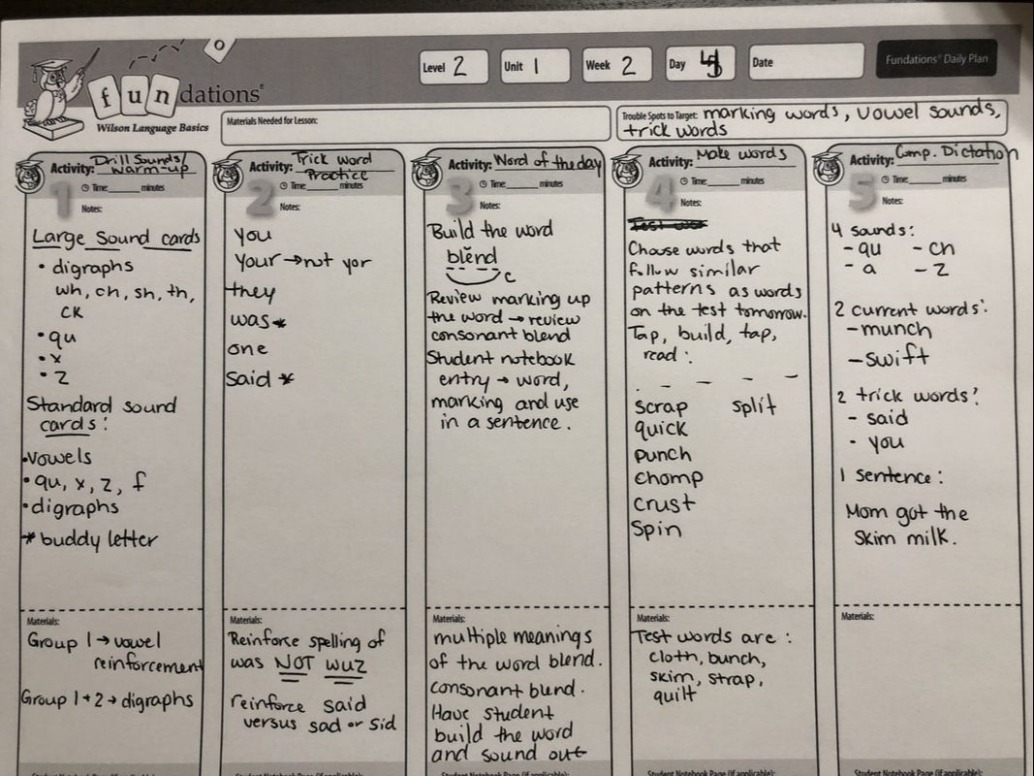 fundations®
Wilson Language Basics
Level 2
Unit 1
Week 2
Day 4
Date
Fundations® Daily Plan
Materials Needed for Lesson:
Trouble Spots to Target: marking words, vowel sounds,
trick words
Activity: Drill Sounds/
Warm-up
Time minutes
1
Notes:
Large Sound cards
• digraphs
wh, ch, sh, th,
ck
• qu
• x
• z
Standard sound
cards:
• vowels
• qu, x, z, f
• digraphs
* buddy letter
Materials:
Group 1 → vowel
reinforcement
Group 1 + 2 → digraphs
Activity: Trick Word
Practice
Time minutes
2
Notes:
you
your → not yor
they
was *
one
said *
Materials:
Reinforce spelling of
was NOT wuz
reinforce said
versus sad or sid
Student Notebook Page (if applicable):
Activity: Word of the day
Time minutes
3
Notes:
Build the word
blĕnd
c
Review marking up
the word → review
consonant blend
Student notebook
entry → word,
marking and use
in a sentence.
Materials:
multiple meanings
of the word blend.
consonant blend.
Have student
build the word
and sound out
Student Notebook Page (if applicable):
Activity: Make words
Time minutes
4
Notes:
Choose words that
follow similar
patterns as words
on the test tomorrow.
Tap, build, tap,
read:
- - - - -
scrap split
quick
punch
chomp
crust
spin
Materials:
Test words are:
cloth, bunch,
skim, strap,
quilt
Student Notebook Page (if applicable):
Activity: Comp. Dictation
Time minutes
5
Notes:
4 sounds:
- qu - ch
- a - z
2 current words:
- munch
- swift
2 trick words:
- said
- you
1 sentence:
Mom got the
skim milk.
Materials:
Student Notebook Page (if applicable):